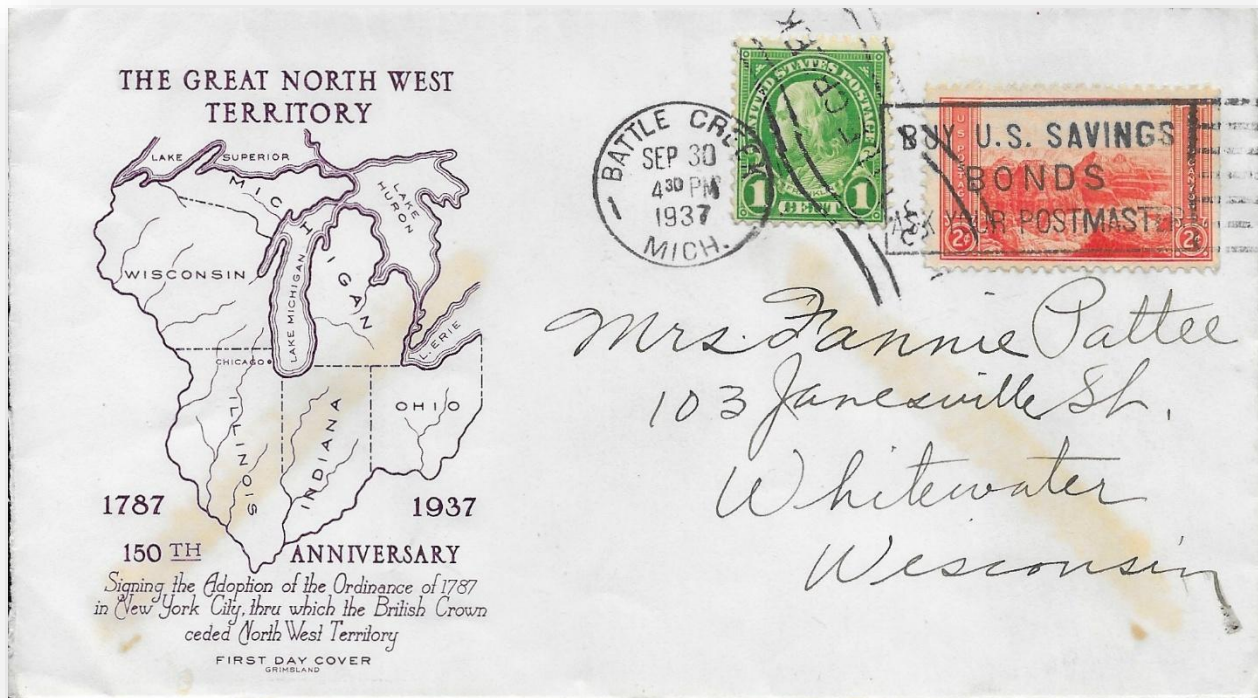 THE GREAT NORTH WEST
TERRITORY
LAKE SUPERIOR
MICHIGAN
LAKE
HURON
WISCONSIN
LAKE MICHIGAN
L. ERIE
CHICAGO
ILLINOIS
INDIANA
OHIO
1787 1937
150 TH ANNIVERSARY
Signing the Adoption of the Ordinance of 1787
in New York City, thru which the British Crown
ceded North West Territory
FIRST DAY COVER
GRIMSLAND
BATTLE CREEK
SEP 30
4 30 PM
1937
MICH.
UNITED STATES POSTAGE
1 1
CENT
U.S. POSTAGE
2¢ 2¢
BUY U.S. SAVINGS
BONDS
ASK YOUR POSTMASTER
Mrs. Fannie Pattee
103 Janesville St.
Whitewater
Wisconsin